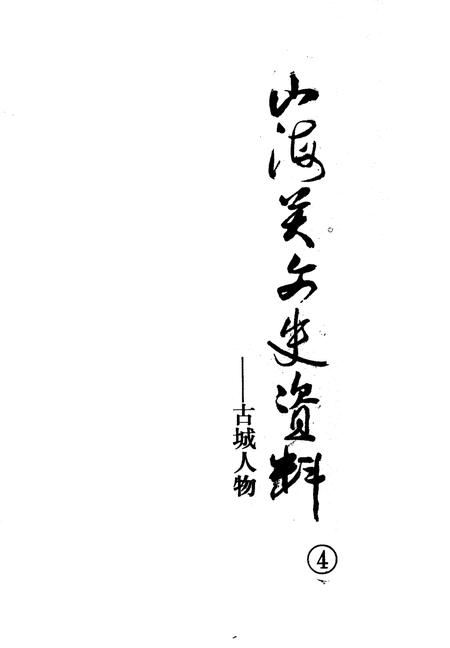 山海关文史资料
——古城人物
④